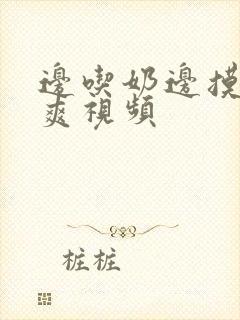 邊喫奶邊摸
爽視頻
桩桩